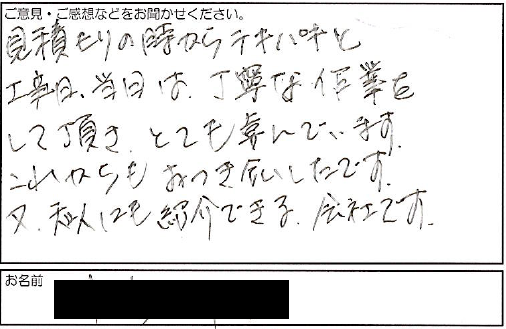 ご意見・ご感想などをお聞かせください。
見積もりの時からテキパキと
工事日、当日は、丁寧な作業を
して頂き、とても喜んでいます。
これからもおつき合いしたいです。
又、知人にも紹介できる、会社です。
お名前